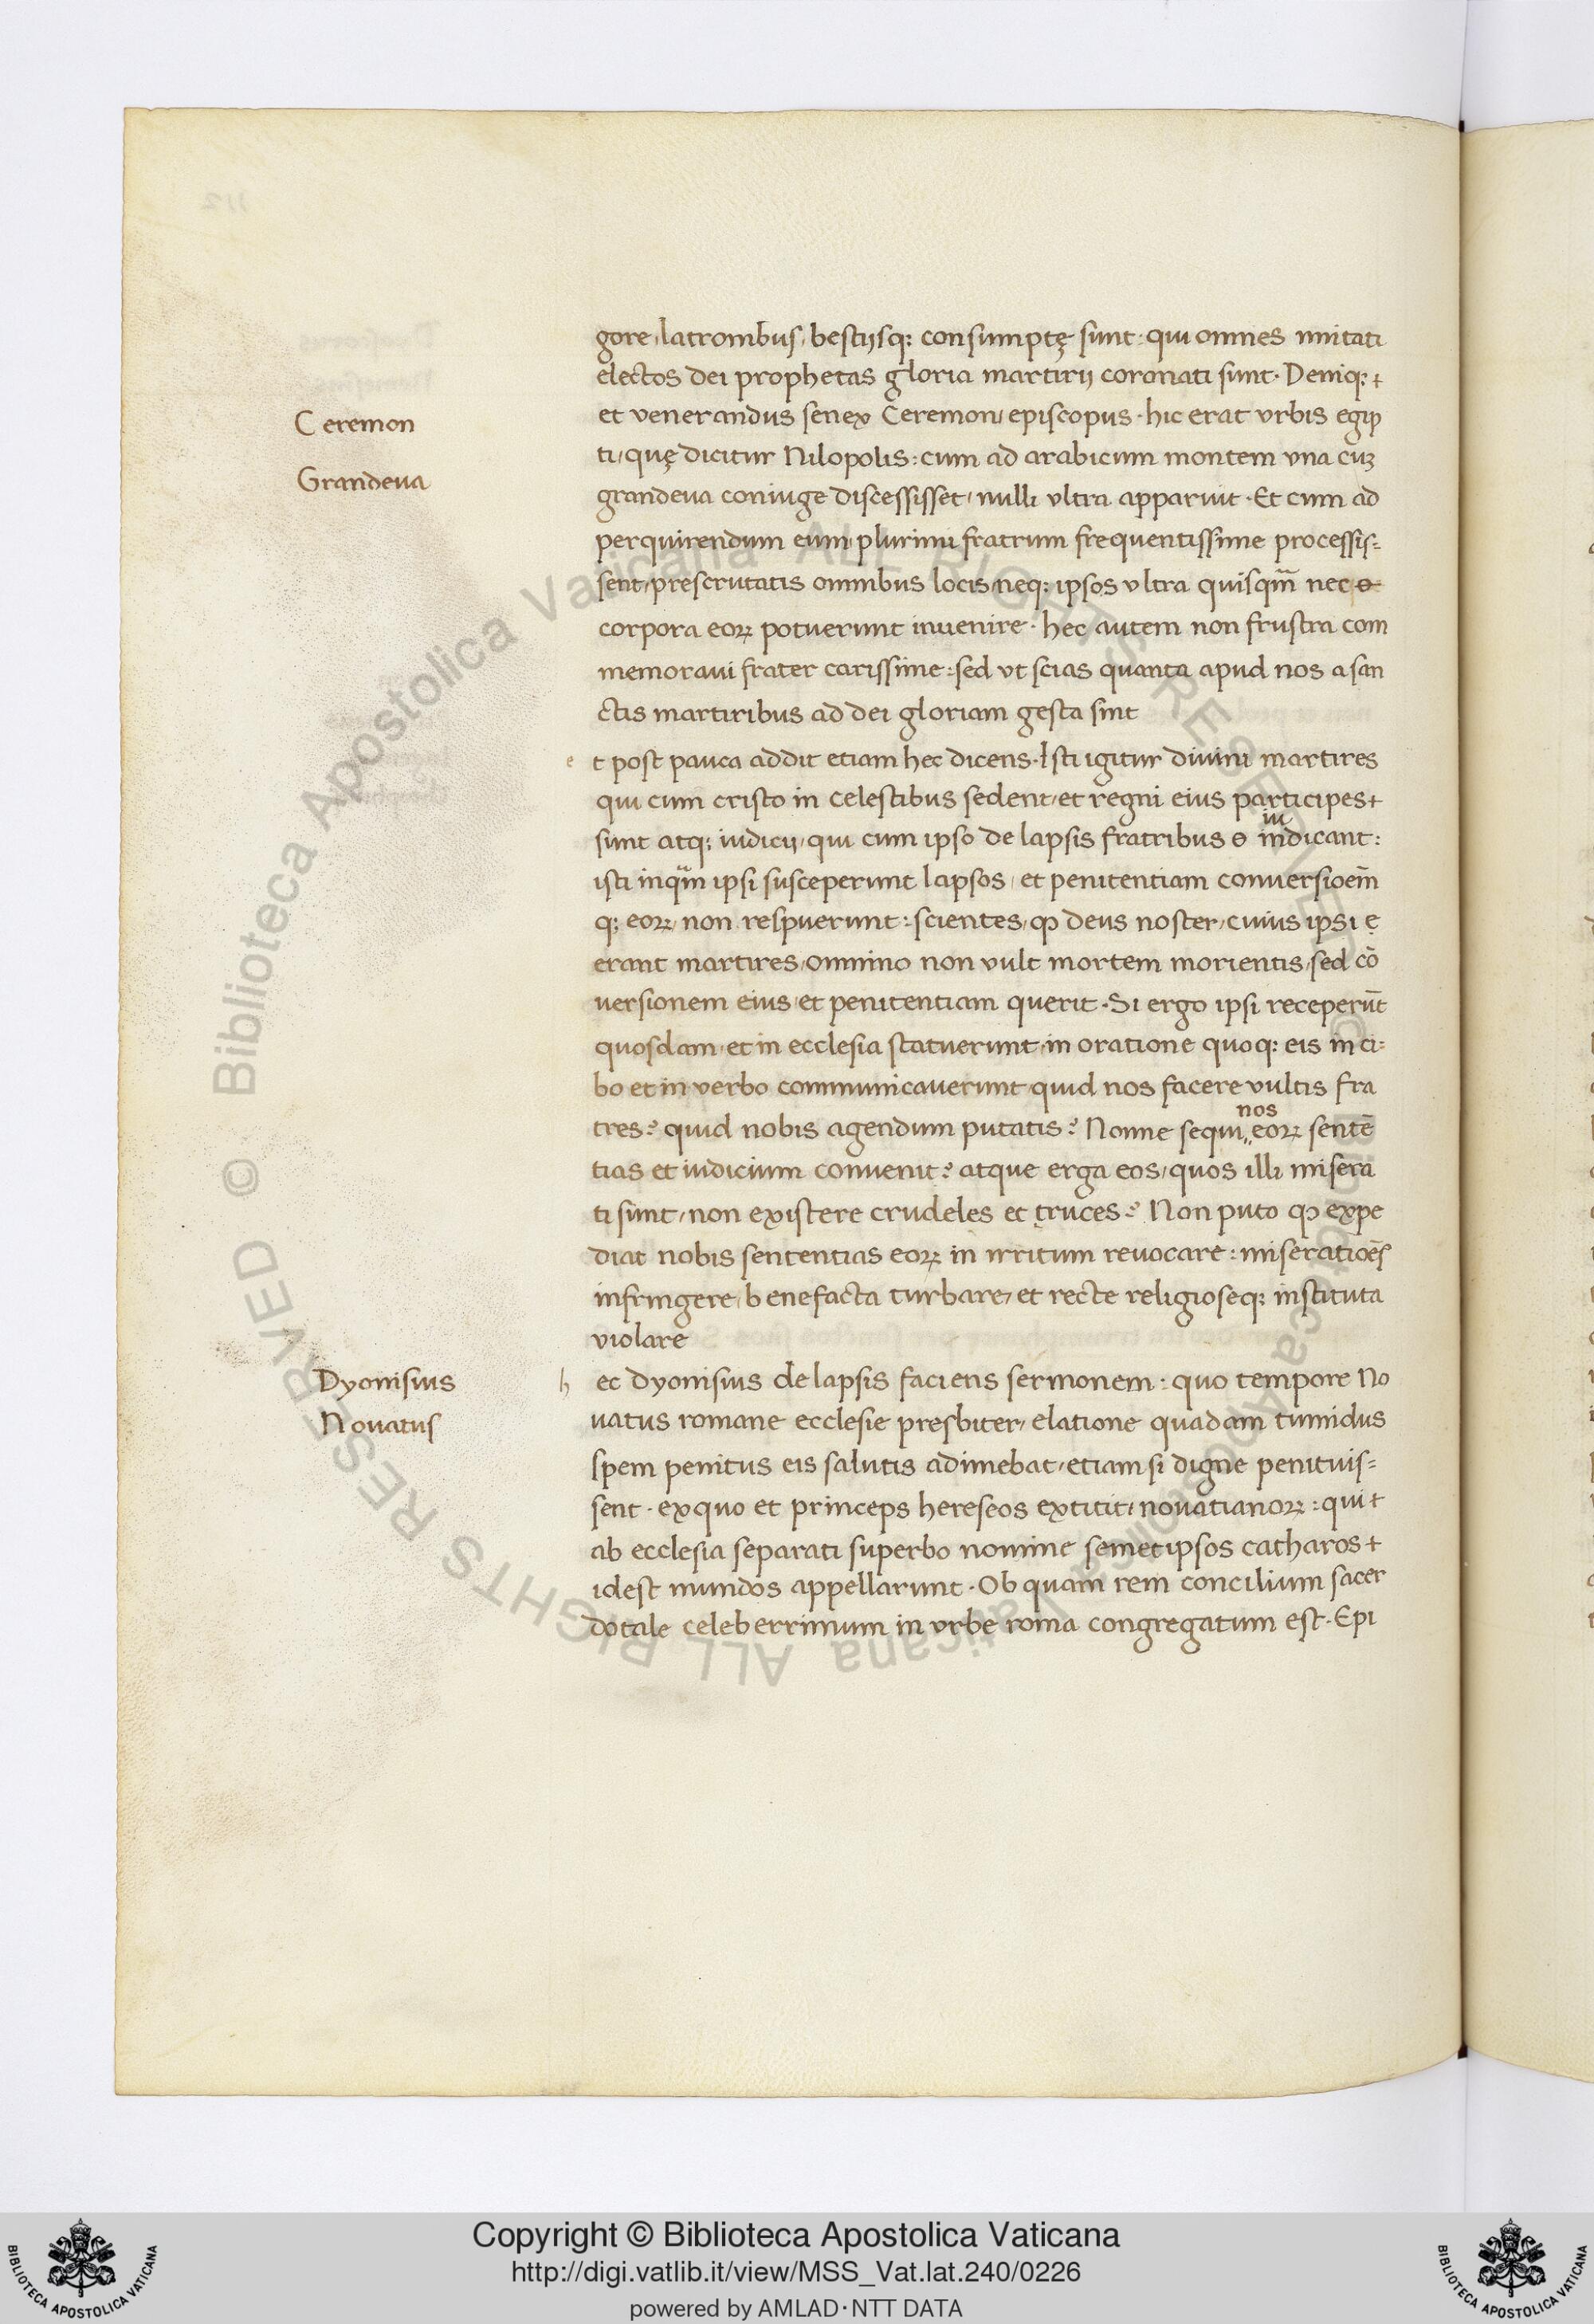 gore, latronibus, bestijsq; consumptę sunt: qui omnes imitati
electos dei prophetas gloria martirij coronati sunt. Deniq; +
Ceremon
et venerandus senex Ceremon, episcopus. hic erat vrbis egip
ti, quę dicitur Nilopolis: cum ad arabicum montem vna cuʒ
Grandeua
grandeua coniuge discessisset, nulli vltra apparuit. Et cum ad
perquirendum eum, plurimi fratrum frequentissime processis=
sent, prescrutatis omnibus locis, neq; ipsos vltra quisqm̄ nec
corpora eoꝝ potuerunt inuenire. hec autem non frustra com
memoraui frater carissime: sed vt scias quanta apud nos a san
ctis martiribus ad dei gloriam gesta sint
e t post pauca addit etiam hec dicens. Isti igitur diuini martires
qui cum cristo in celestibus sedent, et regni eius participes +
iu
sunt atq; iudicij, qui cum ipso de lapsis fratribus o indicant:
isti inqm̄ ipsi susceperunt lapsos, et penitentiam conuersioēm
q; eoꝝ, non respuerunt: scientes, ꝙ deus noster, cuius ipsi e
erant martires, omnino non vult mortem morientis, sed cō
uersionem eius, et penitentiam querit. Si ergo ipsi receperūt
quosdam, et in ecclesia statuerunt, in oratione quoq; eis in ci=
bo et in verbo communicauerunt, quid nos facere vultis fra
nos
tres? quid nobis agendum putatis? Nonne sequi,, eoꝝ sentē
tias et iudicium conuenit? atque erga eos, quos illi misera
ti sunt, non existere crudeles et truces? Non puto ꝙ expe
diat nobis sententias eoꝝ in irritum reuocare: miseratioēs
infringere, benefacta turbare, et recte religioseq; instituta
violare
Dyonisius
h ec dyonisius de lapsis faciens sermonem: quo tempore No
Nouatus
uatus romane ecclesie presbiter, elatione quadam tumidus
spem penitus eis salutis adimebat, etiam si digne penituis=
sent. ex quo et princeps hereseos extitit, nouatianoꝝ: qui +
ab ecclesia separati superbo nomine semetipsos catharos +
idest mundos appellarunt. Ob quam rem concilium sacer
dotale celeberrimum in vrbe roma congregatum est. Epi
© Biblioteca Apostolica Vaticana ALL RIGHTS RESERVED
© Biblioteca Apostolica Vaticana ALL RIGHTS RESERVED
Copyright © Biblioteca Apostolica Vaticana
http://digi.vatlib.it/view/MSS_Vat.lat.240/0226
powered by AMLAD·NTT DATA
BIBLIOTECA APOSTOLICA VATICANA
BIBLIOTECA APOSTOLICA VATICANA